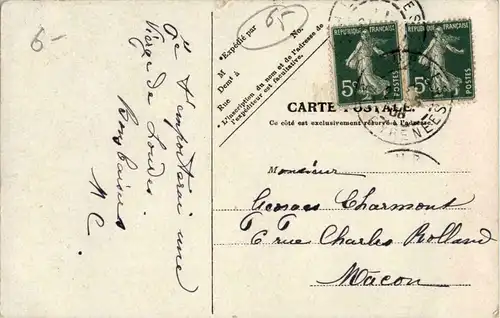 6-
Je t'emporterai une
Vierge de Lourdes.
Bons baisers
M C
65
*Expédié par
No.
M
Demt à
Rue
*L'inscription du nom et de l'adresse de
l'expéditeur est facultative.
REPUBLIQUE FRANÇAISE
5c
POSTES
REPUBLIQUE FRANÇAISE
5c
POSTES
CARTE POSTALE
Ce côté est exclusivement réservé à l'adresse.
Monsieur
Georges Charmont
6 rue Charles Rolland
Mâcon